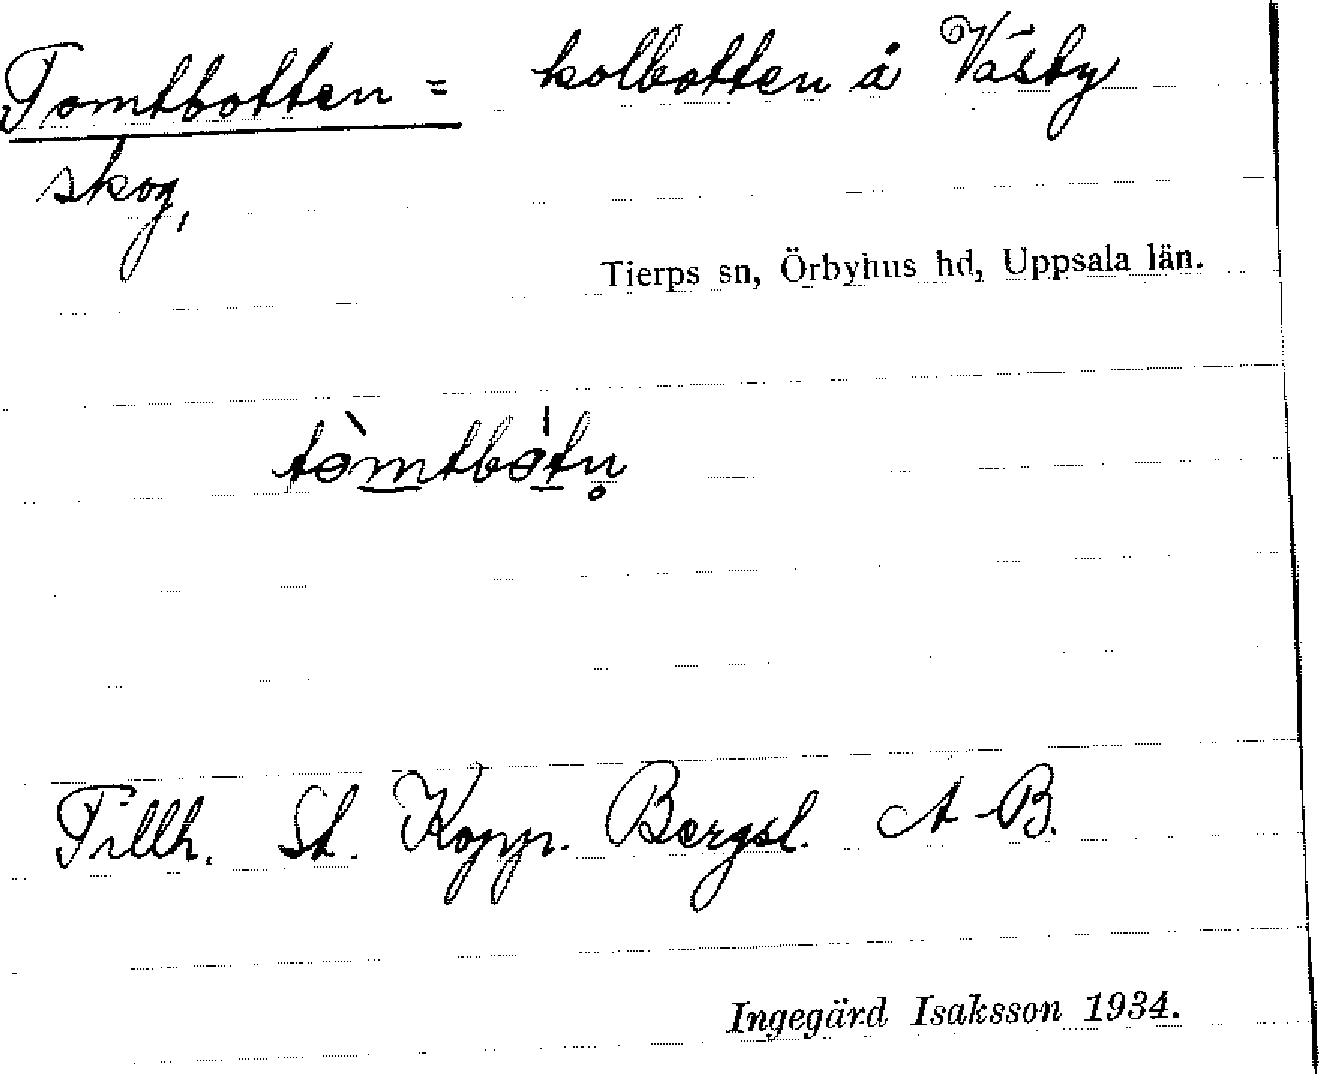 Tomtbotten = kolbotten å Västy
skog,
Tierps sn, Örbyhus hd, Uppsala län.
tòmtbo̍tn̥
Tillh. St. Kopp. Bergsl. A-B.
Ingegärd Isaksson 1934.